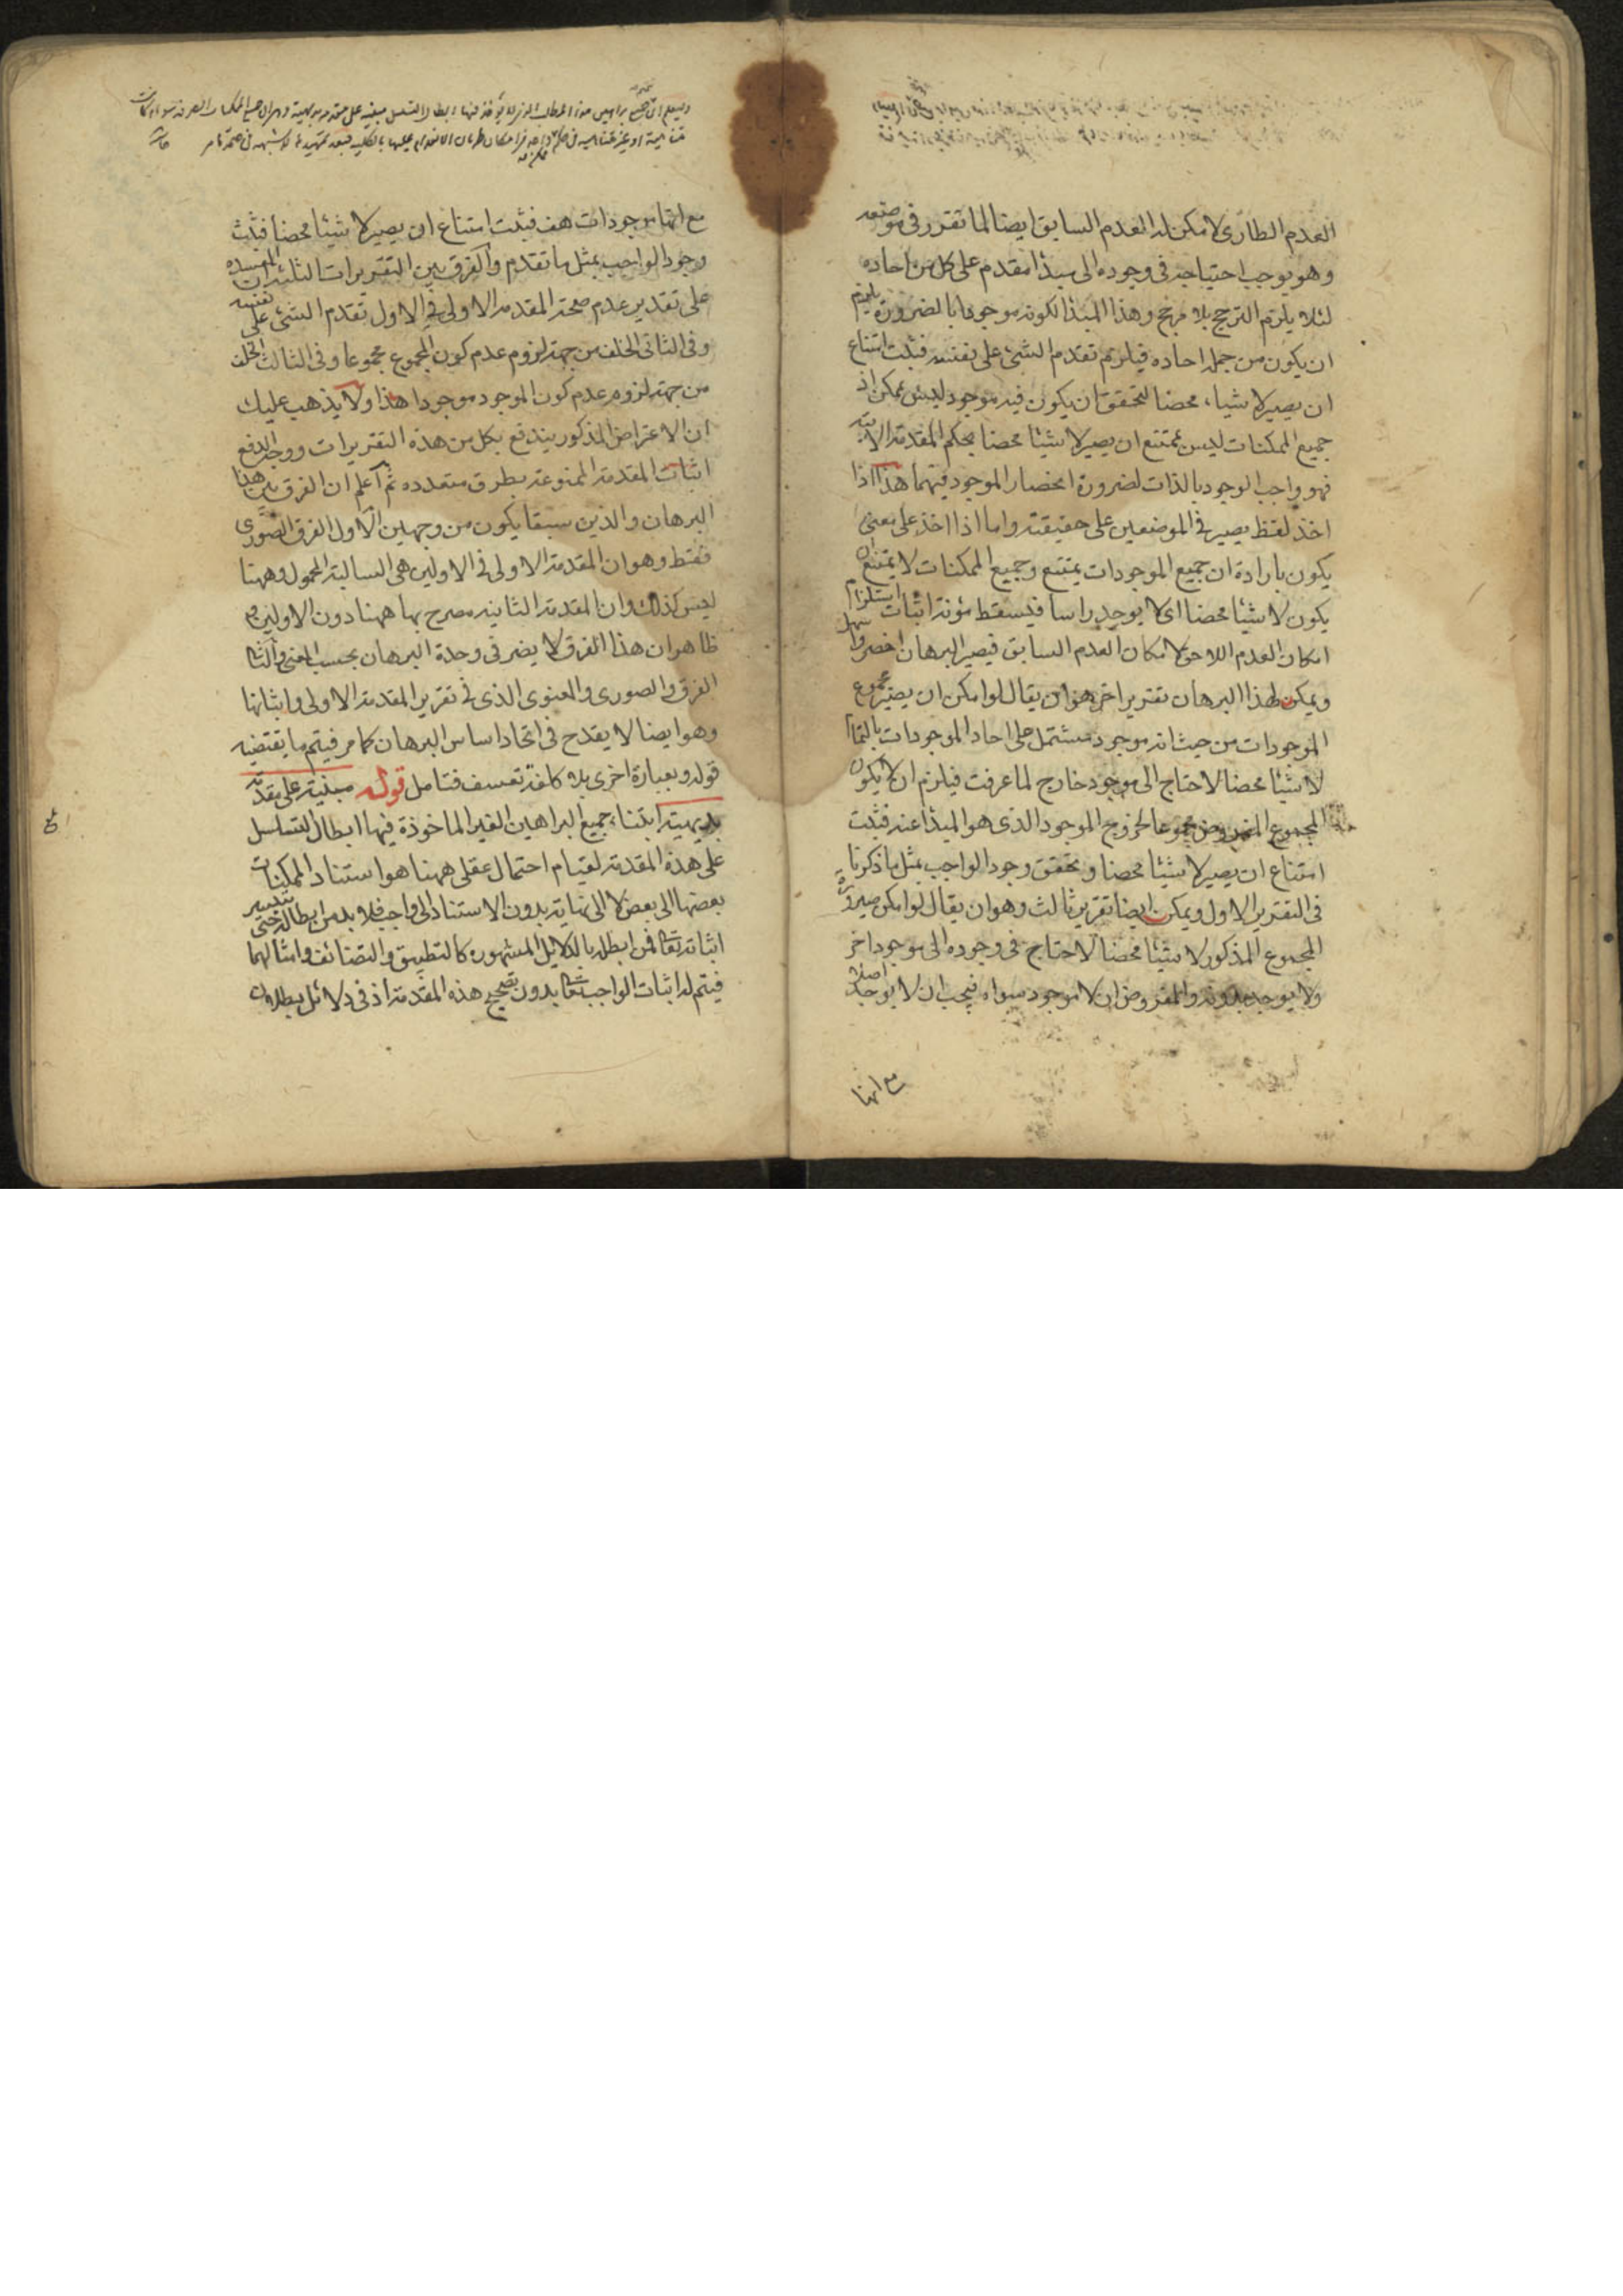 العدم الطارى لامكن له العدم السابق ايضا لما تقرر فى موضعه
وهو يوجب احتياجه فى وجوده الى مبدأ مقدم على كل من احاده
لئلا يلزم الترجح بلا مرجح وهذا المبدأ لكونه موجودا بالضرورة يلزم
ان يكون من جملة احاده فيلزم تقدم الشئ على نفسه فثبت امتناع
ان يصير لا شيئا محضا لتحقق ان يكون فيه موجود ليس بممكن اذ
جميع الممكنات ليس بممتنع ان يصير لا شيئا محضا بحكم المقدمة الاتية
فهو واجب الوجود بالذات لضرورة انحصار الموجود فيهما هذا اذا
اخذ لفظ يصير فى الموضعين على حقيقته واما اذا اخذ على معنى
يكون بارادة ان جميع الموجودات يمتنع وجميع الممكنات لا يمتنع ان
يكون لا شيئا محضا اى لا يوجد راسا فيسقط مؤنة اثبات استلزام
امكان العدم اللاحق لامكان العدم السابق فيصير البرهان اخصر واسهل
ويمكن لهذا البرهان تقرير اخر هو ان يقال لو امكن ان يصير مجموع
الموجودات من حيث انه موجود مشتمل على احاد الموجودات بالتمام
لا شيئا محضا لاحتاج الى موجود خارج لما عرفت فيلزم ان لا يكون
المجموع المفروض مجموعا لخروج الموجود الذى هو المبدأ عنه فثبت
امتناع ان يصير لا شيئا محضا وتحقق وجود الواجب بمثل ما ذكرنا
فى التقرير الاول ويمكن ايضا تقرير ثالث وهو ان يقال لو امكن صيرورة
المجموع المذكور لا شيئا محضا لاحتاج فى وجوده الى موجود اخر
ولا يوجد بدونه والمفروض ان لا موجود سواه فيجب ان لا يوجد اصلا
مع انها
مع انها موجودات هف فثبت امتناع ان يصير لا شيئا محضا فثبت
وجود الواجب بمثل ما تقدم والفرق بين التقريرات الثلثة ان المفسدة
على تقدير عدم صحة المقدمة الاولى فى الاول تقدم الشئ على نفسه
وفى الثانى الخلف من جهة لزوم عدم كون المجموع مجموعا وفى الثالث الخلف
من جهة لزوم عدم كون الموجود موجودا هذا ولا يذهب عليك
ان الاعتراض المذكور يندفع بكل من هذه التقريرات ووجه الدفع
اثبات المقدمة الممنوعة بطرق متعدده ثم اعلم ان الفرق بين هذا
البرهان والذين سبقا يكون من وجهين الاول الفرق الصورى
فقط وهو ان المقدمة الاولى فى الاولين هى السالبة المحمول وههنا
ليس كذلك وان المقدمة الثانيه مصرح بها ههنا دون الاولين
ظاهر ان هذا الفرق لا يضر فى وحدة البرهان بحسب المعنى والثانى
الفرق الصورى والمعنوى الذى فى تقرير المقدمة الاولى واثباتها
وهو ايضا لا يقدح فى اتحاد اساس البرهان كما مر فيتم ما يقتضيه
قوله وبعبارة اخرى بلا كلفة تعسف فتامل قوله مبنية على مقدمة
بديهية ابتناء جميع البراهين الغير الماخوذة فيها ابطال التسلسل
على هذه المقدمة لقيام احتمال عقلى ههنا هو استناد الممكنات
بعضها الى بعض لا الى نهاية بدون الاستناد الى واجب فلا بد من ابطاله حتى يتيسر
اثباته تعالى فمن ابطله بالدلايل المشهوره كالتطبيق والتضائف وامثالهما
فيتم له اثبات الواجب تعالى بدون تصحيح هذه المقدمة اذ فى دلائل بطلان